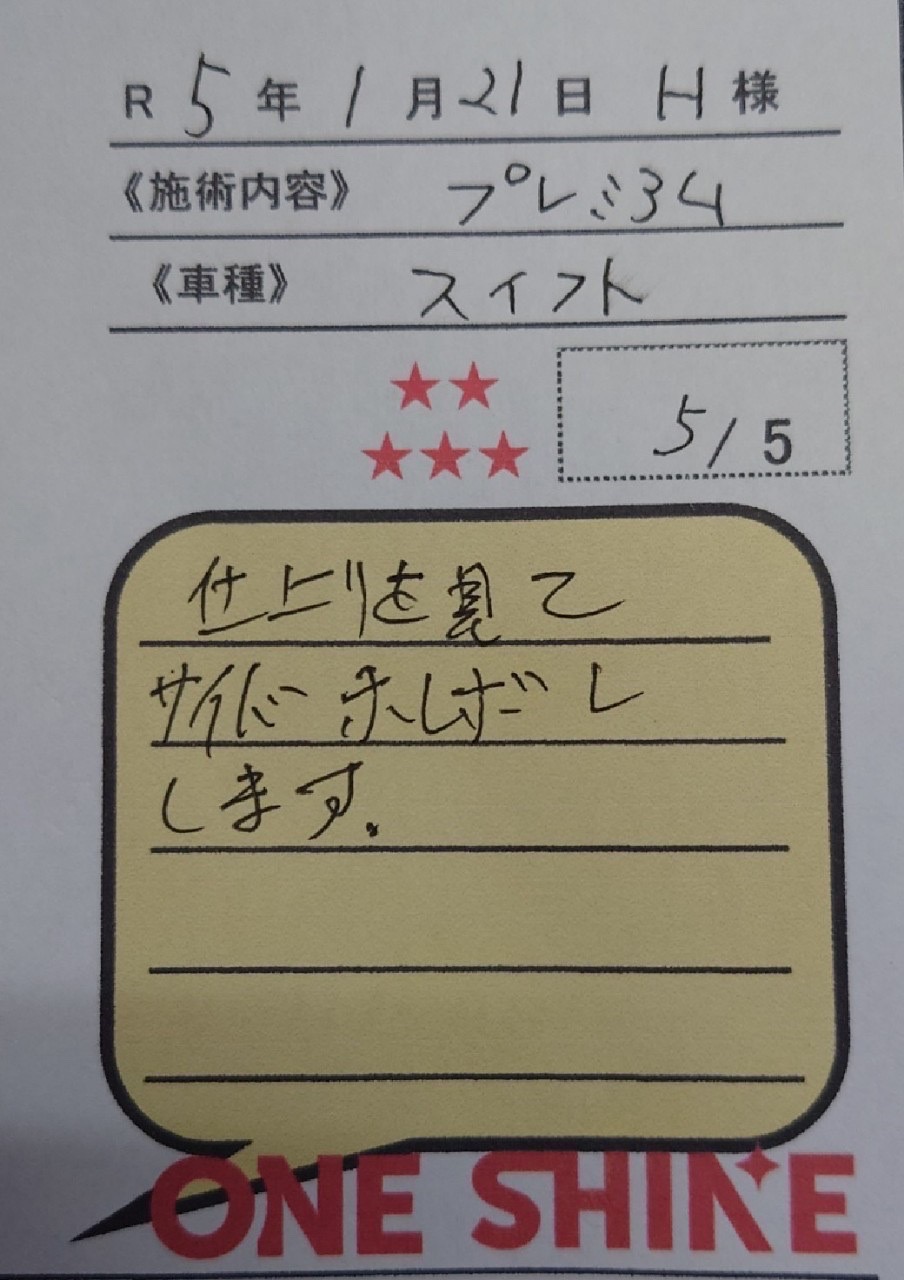 R 5年 1月21日 H様
《施術内容》 プレミアム
《車種》 スイフト
5/5
仕上りを見て
サイド ホレボレ
します.
ONE SHINE